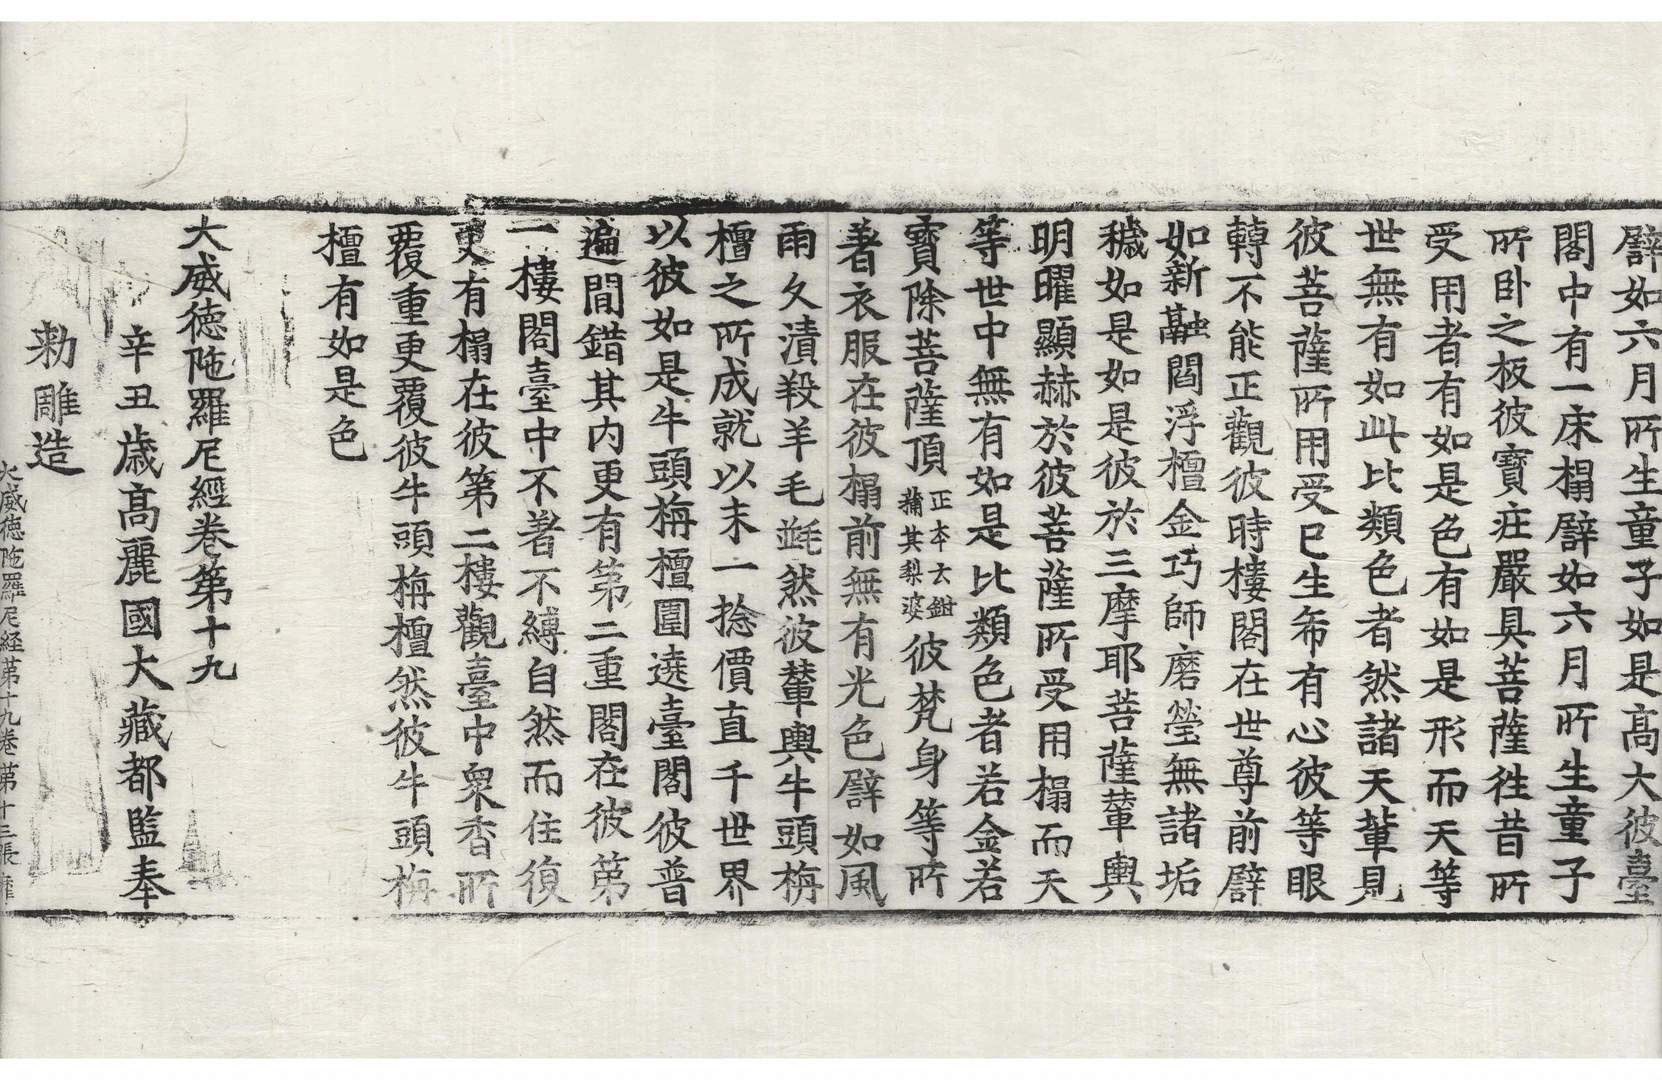 譬如六月所生童子如是高大彼臺
閣中有一床榻譬如六月所生童子
所臥之板彼寶莊嚴具菩薩往昔所
受用者有如是色有如是形而天等
世無有如此比類色者然諸天輩見
彼菩薩所用受已生希有心彼等眼
轉不能正觀彼時樓閣在世尊前譬
如新融閻浮檀金巧師磨瑩無諸垢
穢如是如是彼於三摩耶菩薩輦輿
明曜顯赫於彼菩薩所受用榻而天
等世中無有如是比類色者若金若
寶除菩薩頂正本云鉗蒱其梨婆彼梵身等所
著衣服在彼榻前無有光色譬如風
雨久漬羖羊毛毾然彼輦輿牛頭栴
檀之所成就以末一捻價直千世界
以彼如是牛頭栴檀圍遶臺閣彼普
遍間錯其内更有第二重閣在彼第
一樓閣臺中不著不縛自然而住復
更有榻在彼第二樓觀臺中衆香所
覆重更覆彼牛頭栴檀然彼牛頭栴
檀有如是色
大威德陁羅尼經卷第十九
辛丑歳高麗國大藏都監奉
勑雕造
大威德陁羅尼経第十九卷 第十三張